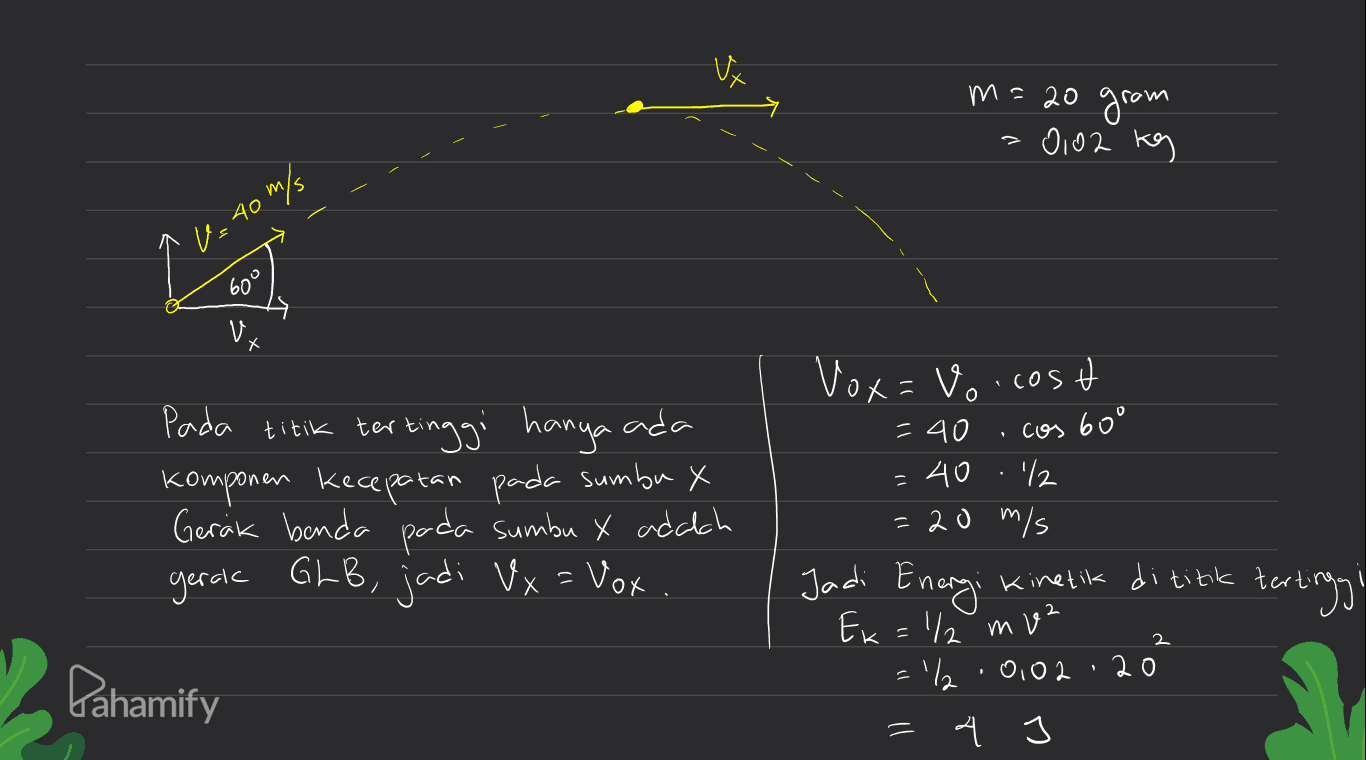 Vx
m = 20 gram
= 0,02 kg
V = 40 m/s
60°
Vx
Pada titik tertinggi hanya ada
komponen kecepatan pada sumbu x
Gerak benda pada sumbu x adalah
gerak GLB, jadi Vx = Vox.
Vox = Vo . cos θ
= 40 . cos 60°
= 40 . 1/2
= 20 m/s
Jadi Energi kinetik di titik tertinggi
Ek = 1/2 m v²
= 1/2 . 0,02 . 20²
= 4 J
Pahamify